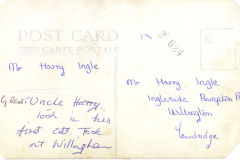 POST CARD
CARTE POSTALE
624
K
Mr Harry Ingle
GREAT Uncle Harry..
took in his
first Cat. Took
at Willingham
Mr Harry Ingle
Ingleside Rampton R
Willingham
Cambridge